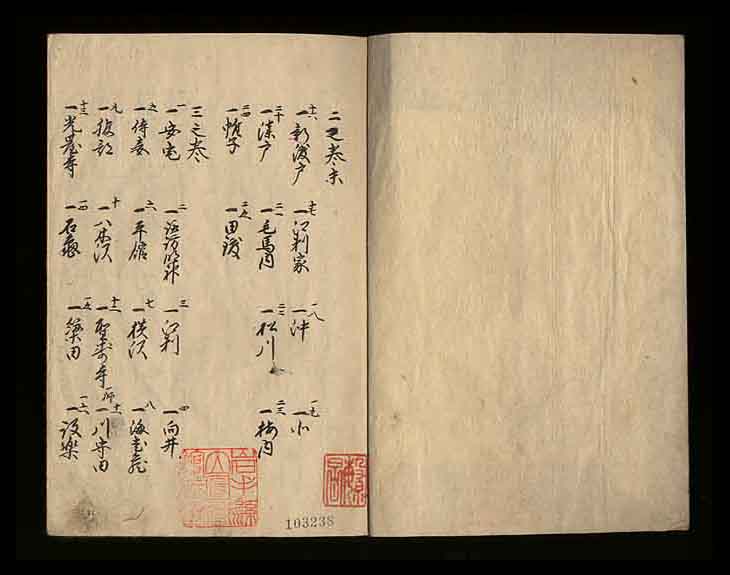 二之巻末
十六 一新渡戸 十七 一江刺家 十八 一沖 十九 一小
二十 一漆戸 二一 一毛馬内 二二 一松川 二三 一梅内
二四 一帷子 二五 一田鎖
三之巻
一 一安宅 二 三 一江刺 四 一向井
五 一侍妾 六 一平舘 七 一横沢 八
九 一服部 十 一八木沢 十一 一聖寿寺 十二 一川守田
十三 一光台寺 十四 一石亀 十五 一築田 十六 一設楽
103238